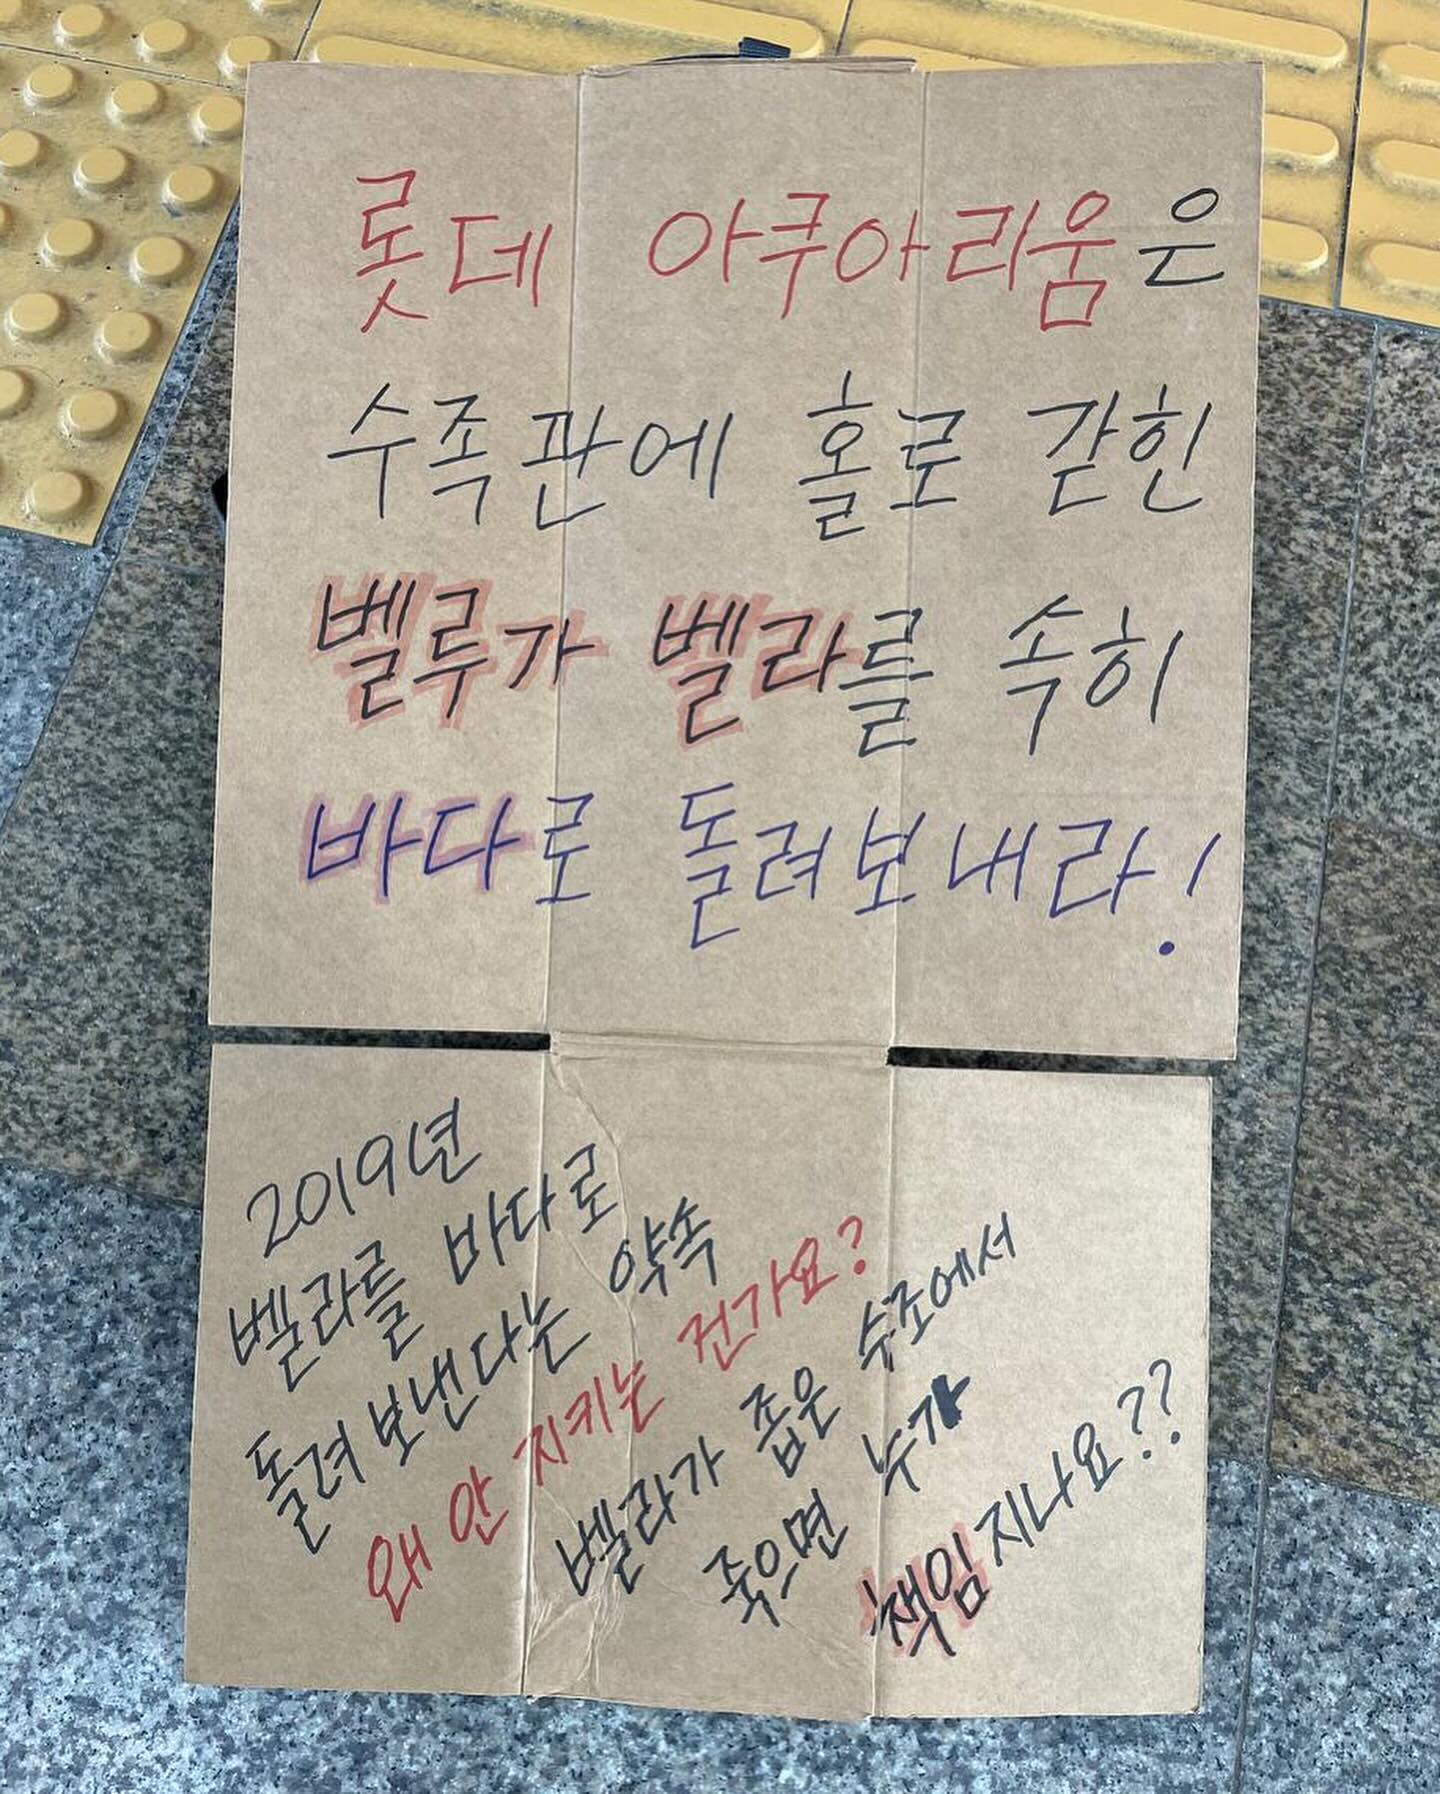 롯데 아쿠아리움은
수족관에 홀로 갇힌
벨루가 벨라를 속히
바다로 돌려보내라!
2019년
벨라를 바다로
돌려보낸다는 약속
왜 안 지키는 건가요?
벨라가 좁은 수조에서
죽으면 누가
책임지나요??